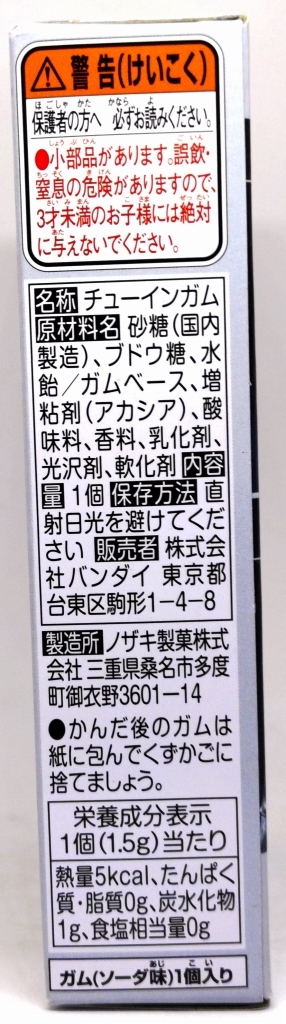 ⚠警告(けいこく)
ほごしゃ かた かなら よ
保護者の方へ 必ずお読みください。
しょうぶひん ごいん
●小部品があります。誤飲・
ちっそく きけん
窒息の危険がありますので、
さいみまん こさま ぜったい
3才未満のお子様には絶対
あた
に与えないでください。
名称 チューインガム
原材料名 砂糖(国内
製造)、ブドウ糖、水
飴/ガムベース、増
粘剤(アカシア)、酸
味料、香料、乳化剤、
光沢剤、軟化剤 内容
量 1個 保存方法 直
射日光を避けてくだ
さい 販売者 株式会
社バンダイ 東京都
台東区駒形1-4-8
製造所 ノザキ製菓株式
会社 三重県桑名市多度
町御衣野3601-14
●かんだ後のガムは
紙に包んでくずかごに
捨てましょう。
栄養成分表示
1個(1.5g)当たり
熱量5kcal、たんぱく
質・脂質0g、炭水化物
1g、食塩相当量0g
あじ こい
ガム(ソーダ味)1個入り